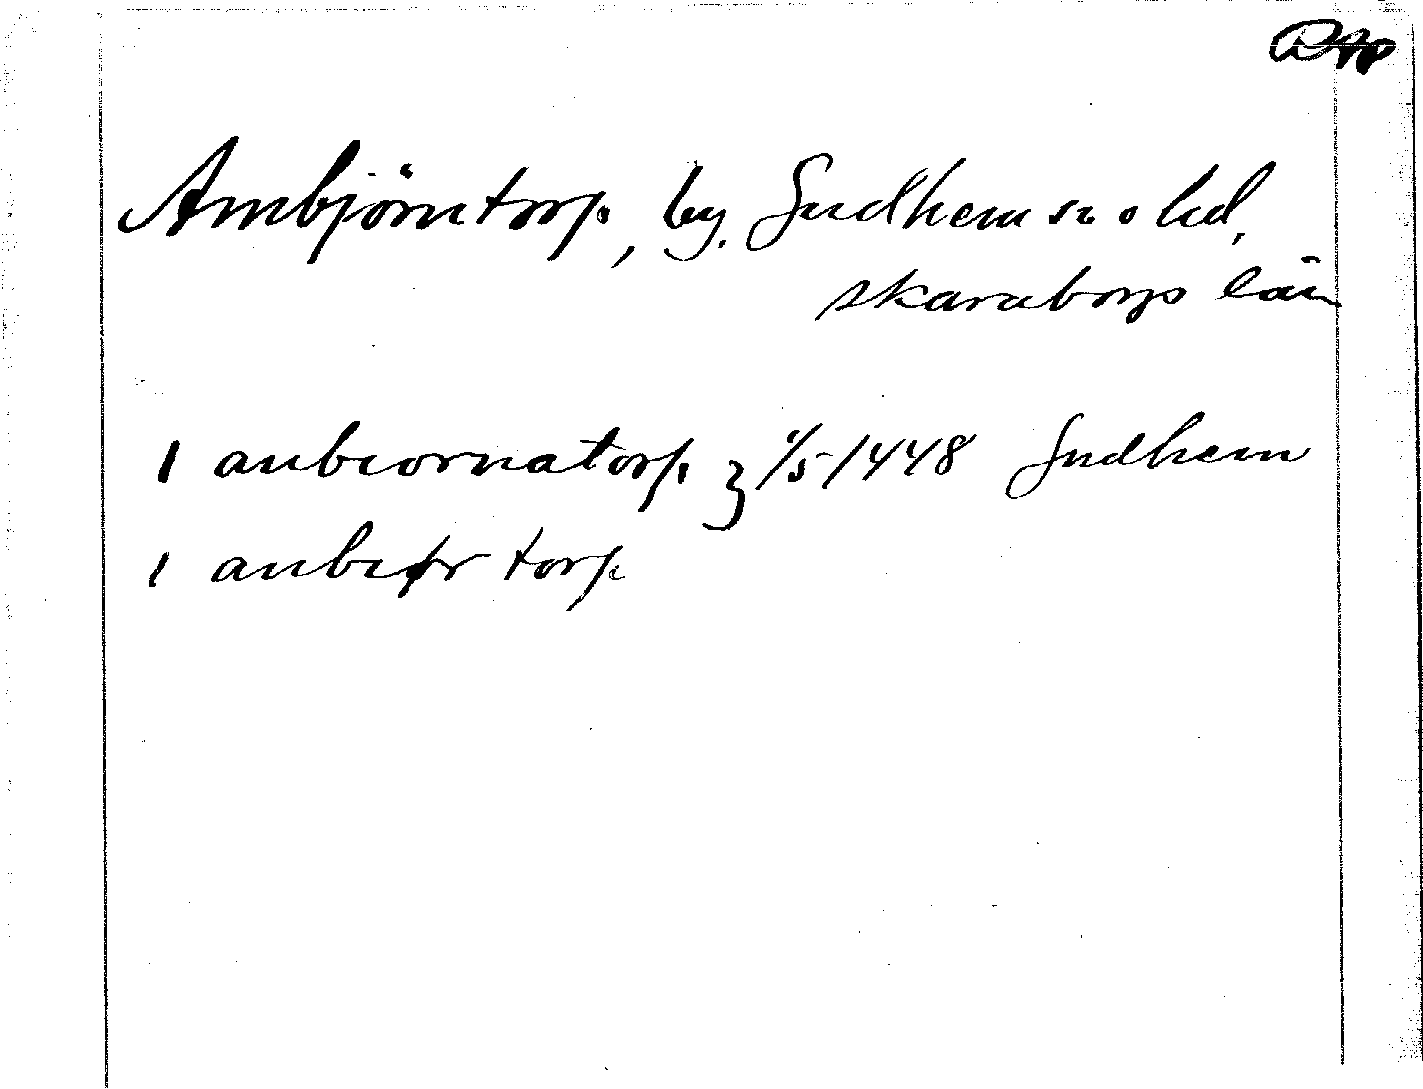 Ambjörntorp, by. Gudhem sn o hd,
skaraborgs län
1 anbiornatorp } 1/5 1448 Gudhem
1 anbiør torp